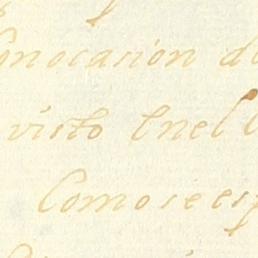 onocasion d
visto Enel
Como se esp